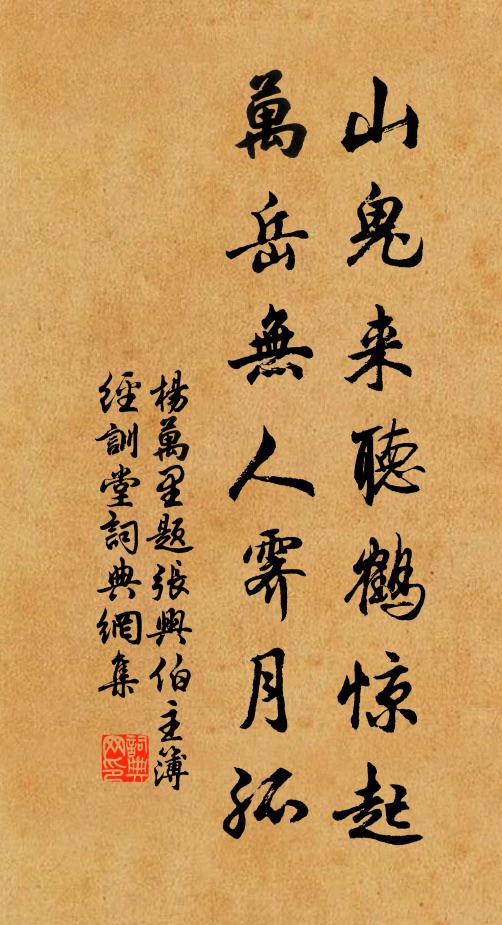 山鬼来聽鶴惊起
萬岳無人霽月孤
楊萬里題張興伯主簿
經訓堂詞典網集
詞典网印